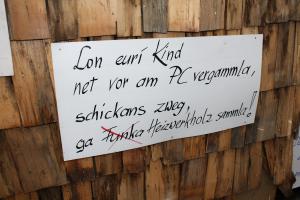 Lon euri Kind
net vor am PC vergammla,
schickans zweg,
ga Heizwerkholz sammla!!